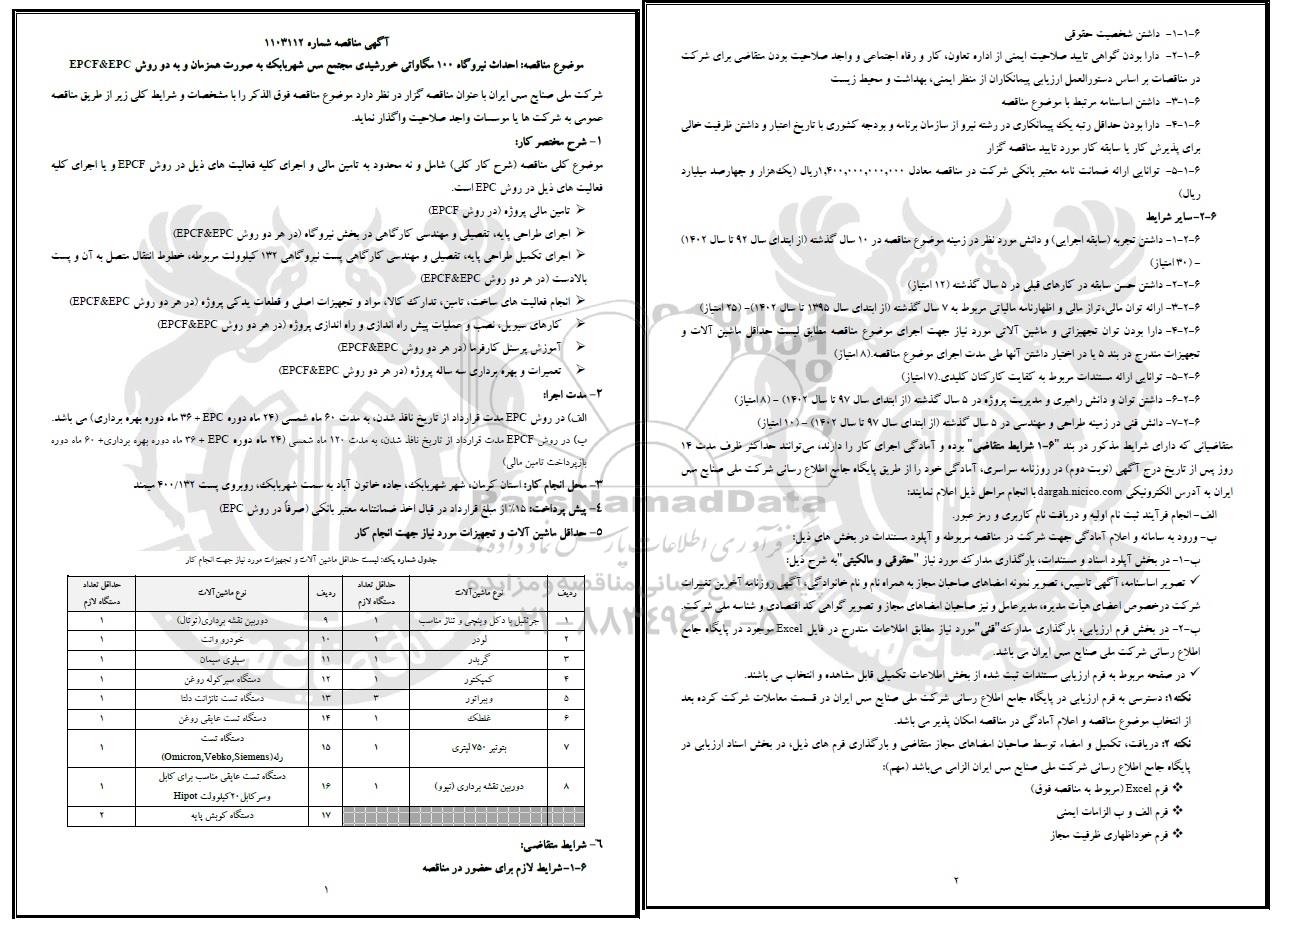 آگهی مناقصه شماره ۱۱۰۳۱۱۲
موضوع مناقصه: احداث نیروگاه ۱۰۰ مگاواتی خورشیدی مجتمع مس شهربابک به صورت همزمان و به دو روش EPCF&EPC
شرکت ملی صنایع مس ایران با عنوان مناقصه گزار در نظر دارد موضوع مناقصه فوق الذکر را با مشخصات و شرایط کلی زیر از طریق مناقصه
عمومی به شرکت ها یا موسسات واجد صلاحیت واگذار نماید.
۱- شرح مختصر کار:
موضوع کلی مناقصه (شرح کار کلی) شامل و نه محدود به تامین مالی و اجرای کلیه فعالیت های ذیل در روش EPCF و یا اجرای کلیه
فعالیت های ذیل در روش EPC است.
➢ تامین مالی پروژه (در روش EPCF)
➢ اجرای طراحی پایه، تفصیلی و مهندسی کارگاهی در بخش نیروگاه (در هر دو روش EPCF&EPC)
➢ اجرای تکمیل طراحی پایه، تفصیلی و مهندسی کارگاهی پست نیروگاهی ۱۳۲ کیلوولت مربوطه، خطوط انتقال متصل به آن و پست
بالادست (در هر دو روش EPCF&EPC)
➢ انجام فعالیت های ساخت، تامین، تدارک کالا، مواد و تجهیزات اصلی و قطعات یدکی پروژه (در هر دو روش EPCF&EPC)
➢ کارهای سیویل، نصب و عملیات پیش راه اندازی و راه اندازی پروژه (در هر دو روش EPCF&EPC)
➢ آموزش پرسنل کارفرما (در هر دو روش EPCF&EPC)
➢ تعمیرات و بهره برداری سه ساله پروژه (در هر دو روش EPCF&EPC)
۲- مدت اجرا:
الف) در روش EPC مدت قرارداد از تاریخ نافذ شدن، به مدت ۶۰ ماه شمسی (۲۴ ماه دوره EPC + ۳۶ ماه دوره بهره برداری) می باشد.
ب) در روش EPCF مدت قرارداد از تاریخ نافذ شدن، به مدت ۱۲۰ ماه شمسی (۲۴ ماه دوره EPC + ۳۶ ماه دوره بهره برداری+ ۶۰ ماه دوره
بازپرداخت تامین مالی)
۳- محل انجام کار: استان کرمان، شهر شهربابک، جاده خاتون آباد به سمت شهربابک، روبروی پست ۴۰۰/۱۳۲ میمند
۴- پیش پرداخت: ۱۵٪ از مبلغ قرارداد در قبال اخذ ضمانتنامه معتبر بانکی (صرفاً در روش EPC)
۵- حداقل ماشین آلات و تجهیزات مورد نیاز جهت انجام کار
جدول شماره یک: لیست حداقل ماشین آلات و تجهیزات مورد نیاز جهت انجام کار
ردیف نوع ماشین‌آلات حداقل تعداد دستگاه لازم ردیف نوع ماشین‌آلات حداقل تعداد دستگاه لازم
۱ جرثقیل یا دکل وینچی و تناژ مناسب ۱ ۹ دوربین نقشه برداری(توتال) ۱
۲ لودر ۱ ۱۰ خودرو وانت ۱
۳ گریدر ۱ ۱۱ سیلوی سیمان ۱
۴ کمپکتور ۱ ۱۲ دستگاه سیرکوله روغن ۱
۵ ویبراتور ۳ ۱۳ دستگاه تست تانژانت دلتا ۱
۶ غلطک ۱ ۱۴ دستگاه تست عایقی روغن ۱
۷ بتونیر ۷۵۰ لیتری ۱ ۱۵ دستگاه تست رله(Omicron,Vebko,Siemens) ۱
۸ دوربین نقشه برداری (نیوو) ۱ ۱۶ دستگاه تست عایقی مناسب برای کابل وسرکابل۲۰کیلوولت Hipot ۱
۱۷ دستگاه کوبش پایه ۲
۶- شرایط متقاضی:
۶-۱-شرایط لازم برای حضور در مناقصه
۱
۶-۱-۱- داشتن شخصیت حقوقی
۶-۱-۲- دارا بودن گواهی تایید صلاحیت ایمنی از اداره تعاون، کار و رفاه اجتماعی و واجد صلاحیت بودن متقاضی برای شرکت
در مناقصات بر اساس دستورالعمل ارزیابی پیمانکاران از منظر ایمنی، بهداشت و محیط زیست
۶-۱-۳- داشتن اساسنامه مرتبط با موضوع مناقصه
۶-۱-۴- دارا بودن حداقل رتبه یک پیمانکاری در رشته نیرو از سازمان برنامه و بودجه کشوری با تاریخ اعتبار و داشتن ظرفیت خالی
برای پذیرش کار یا سابقه کار مورد تایید مناقصه گزار
۶-۱-۵- توانایی ارائه ضمانت نامه معتبر بانکی شرکت در مناقصه معادل ۱,۴۰۰,۰۰۰,۰۰۰,۰۰۰ریال (یک‌هزار و چهارصد میلیارد
ریال)
۶-۲-سایر شرایط
۶-۲-۱- داشتن تجربه (سابقه اجرایی) و دانش مورد نظر در زمینه موضوع مناقصه در ۱۰ سال گذشته (از ابتدای سال ۹۲ تا سال ۱۴۰۲)
- (۳۰ امتیاز)
۶-۲-۲- داشتن حسن سابقه در کارهای قبلی در ۵ سال گذشته (۱۲ امتیاز)
۶-۲-۳- ارائه توان مالی،تراز مالی و اظهارنامه مالیاتی مربوط به ۷ سال گذشته (از ابتدای سال ۱۳۹۵ تا سال ۱۴۰۲)- (۲۵ امتیاز)
۶-۲-۴- دارا بودن توان تجهیزاتی و ماشین آلاتی مورد نیاز جهت اجرای موضوع مناقصه مطابق لیست حداقل ماشین آلات و
تجهیزات مندرج در بند ۵ یا در اختیار داشتن آنها طی مدت اجرای موضوع مناقصه.(۸ امتیاز)
۶-۲-۵- توانایی ارائه مستندات مربوط به کفایت کارکنان کلیدی.(۷ امتیاز)
۶-۲-۶- داشتن توان و دانش راهبری و مدیریت پروژه در ۵ سال گذشته (از ابتدای سال ۹۷ تا سال ۱۴۰۲) - (۸ امتیاز)
۶-۲-۷- دانش فنی در زمینه طراحی و مهندسی در ۵ سال گذشته (از ابتدای سال ۹۷ تا سال ۱۴۰۲) - (۱۰ امتیاز)
متقاضیانی که دارای شرایط مذکور در بند "۶-۱ شرایط متقاضی" بوده و آمادگی اجرای کار را دارند، می‌توانند حداکثر ظرف مدت ۱۴
روز پس از تاریخ درج آگهی (نوبت دوم) در روزنامه سراسری، آمادگی خود را از طریق پایگاه جامع اطلاع رسانی شرکت ملی صنایع مس
ایران به آدرس الکترونیکی dargah.nicico.com با انجام مراحل ذیل اعلام نمایند:
الف- انجام فرآیند ثبت نام اولیه و دریافت نام کاربری و رمز عبور.
ب- ورود به سامانه و اعلام آمادگی جهت شرکت در مناقصه مربوطه و آپلود مستندات در بخش های ذیل:
ب-۱- در بخش آپلود اسناد و مستندات، بارگذاری مدارک مورد نیاز "حقوقی و مالکیتی" به شرح ذیل:
✓ تصویر اساسنامه، آگهی تاسیس، تصویر نمونه امضاهای صاحبان مجاز به همراه نام و نام خانوادگی، آگهی روزنامه آخرین تغییرات
شرکت درخصوص اعضای هیأت مدیره، مدیرعامل و نیز صاحبان امضاهای مجاز و تصویر گواهی کد اقتصادی و شناسه ملی شرکت.
ب-۲- در بخش فرم ارزیابی، بارگذاری مدارک"فنی"مورد نیاز مطابق اطلاعات مندرج در فایل Excel موجود در پایگاه جامع
اطلاع رسانی شرکت ملی صنایع مس ایران می باشد.
✓ در صفحه مربوط به فرم ارزیابی مستندات ثبت شده از بخش اطلاعات تکمیلی قابل مشاهده و انتخاب می باشند.
نکته ۱: دسترسی به فرم ارزیابی در پایگاه جامع اطلاع رسانی شرکت ملی صنایع مس ایران در قسمت معاملات شرکت کرده بعد
از انتخاب موضوع مناقصه و اعلام آمادگی در مناقصه امکان پذیر می باشد.
نکته ۲: دریافت، تکمیل و امضاء توسط صاحبان امضاهای مجاز متقاضی و بارگذاری فرم های ذیل، در بخش اسناد ارزیابی در
پایگاه جامع اطلاع رسانی شرکت ملی صنایع مس ایران الزامی می‌باشد (مهم):
❖ فرم Excel (مربوط به مناقصه فوق)
❖ فرم الف و ب الزامات ایمنی
❖ فرم خوداظهاری ظرفیت مجاز
۲
ParsNamadData